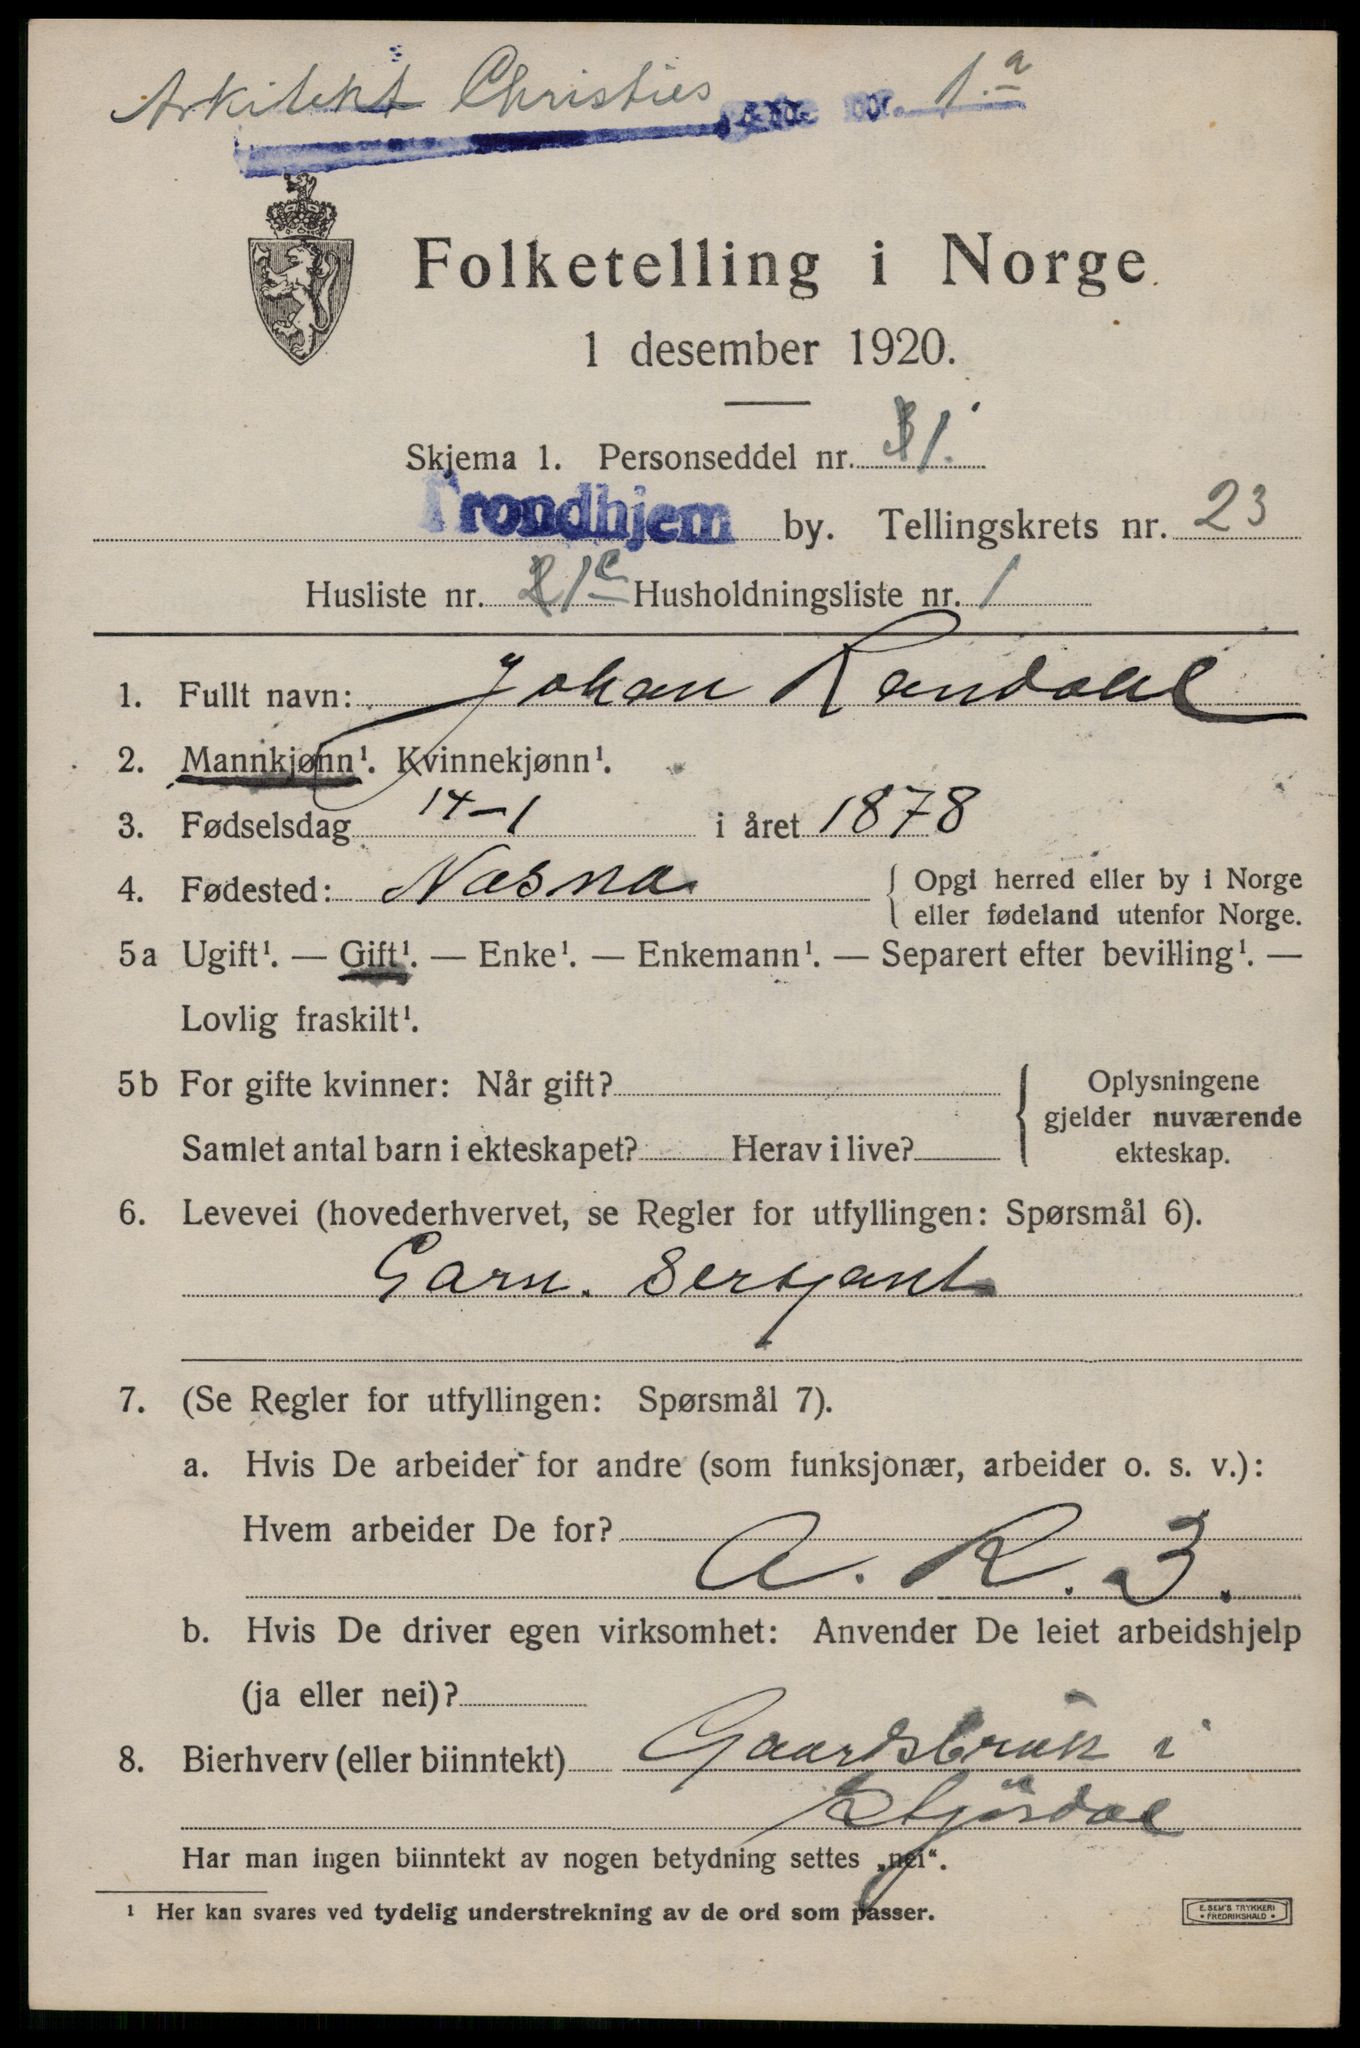 Arkitekt Christies gate nr. 1.a
Folketelling i Norge
1 desember 1920.
Skjema 1. Personseddel nr. 1.
Trondhjem by. Tellingskrets nr. 23
Husliste nr. 1c Husholdningsliste nr. 1
1. Fullt navn: Johan Randahl
2. Mannkjønn¹. Kvinnekjønn¹.
3. Fødselsdag 14-1 i året 1878
4. Fødested: Næsna { Opgi herred eller by i Norge
eller fødeland utenfor Norge.
5a Ugift¹. — Gift¹. — Enke¹. — Enkemann¹. — Separert efter bevilling¹. —
Lovlig fraskilt¹.
5b For gifte kvinner: Når gift? { Oplysningene
gjelder nuværende
Samlet antal barn i ekteskapet? Herav i live? ekteskap.
6. Levevei (hovederhvervet, se Regler for utfyllingen: Spørsmål 6).
Garn. Sersjant
7. (Se Regler for utfyllingen: Spørsmål 7).
a. Hvis De arbeider for andre (som funksjonær, arbeider o. s. v.):
Hvem arbeider De for?
A. R. 3.
b. Hvis De driver egen virksomhet: Anvender De leiet arbeidshjelp
(ja eller nei)?
8. Bierhverv (eller biinntekt) Gaardsbruk i
Stjørdal
Har man ingen biinntekt av nogen betydning settes „nei“.
¹ Her kan svares ved tydelig understrekning av de ord som passer.
E. SEM'S TRYKKERI
• FREDRIKSHALD •